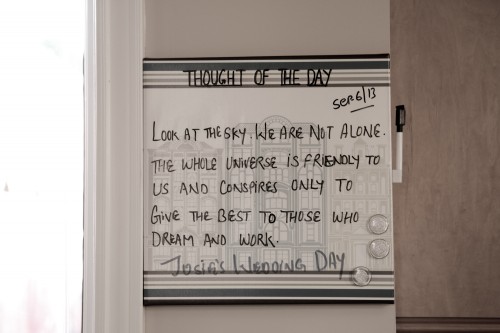 THOUGHT OF THE DAY
SEP 6/13
LOOK AT THE SKY. WE ARE NOT ALONE.
THE WHOLE UNIVERSE IS FRIENDLY TO
US AND CONSPIRES ONLY TO
GIVE THE BEST TO THOSE WHO
DREAM AND WORK.
JOSIE'S WEDDING DAY